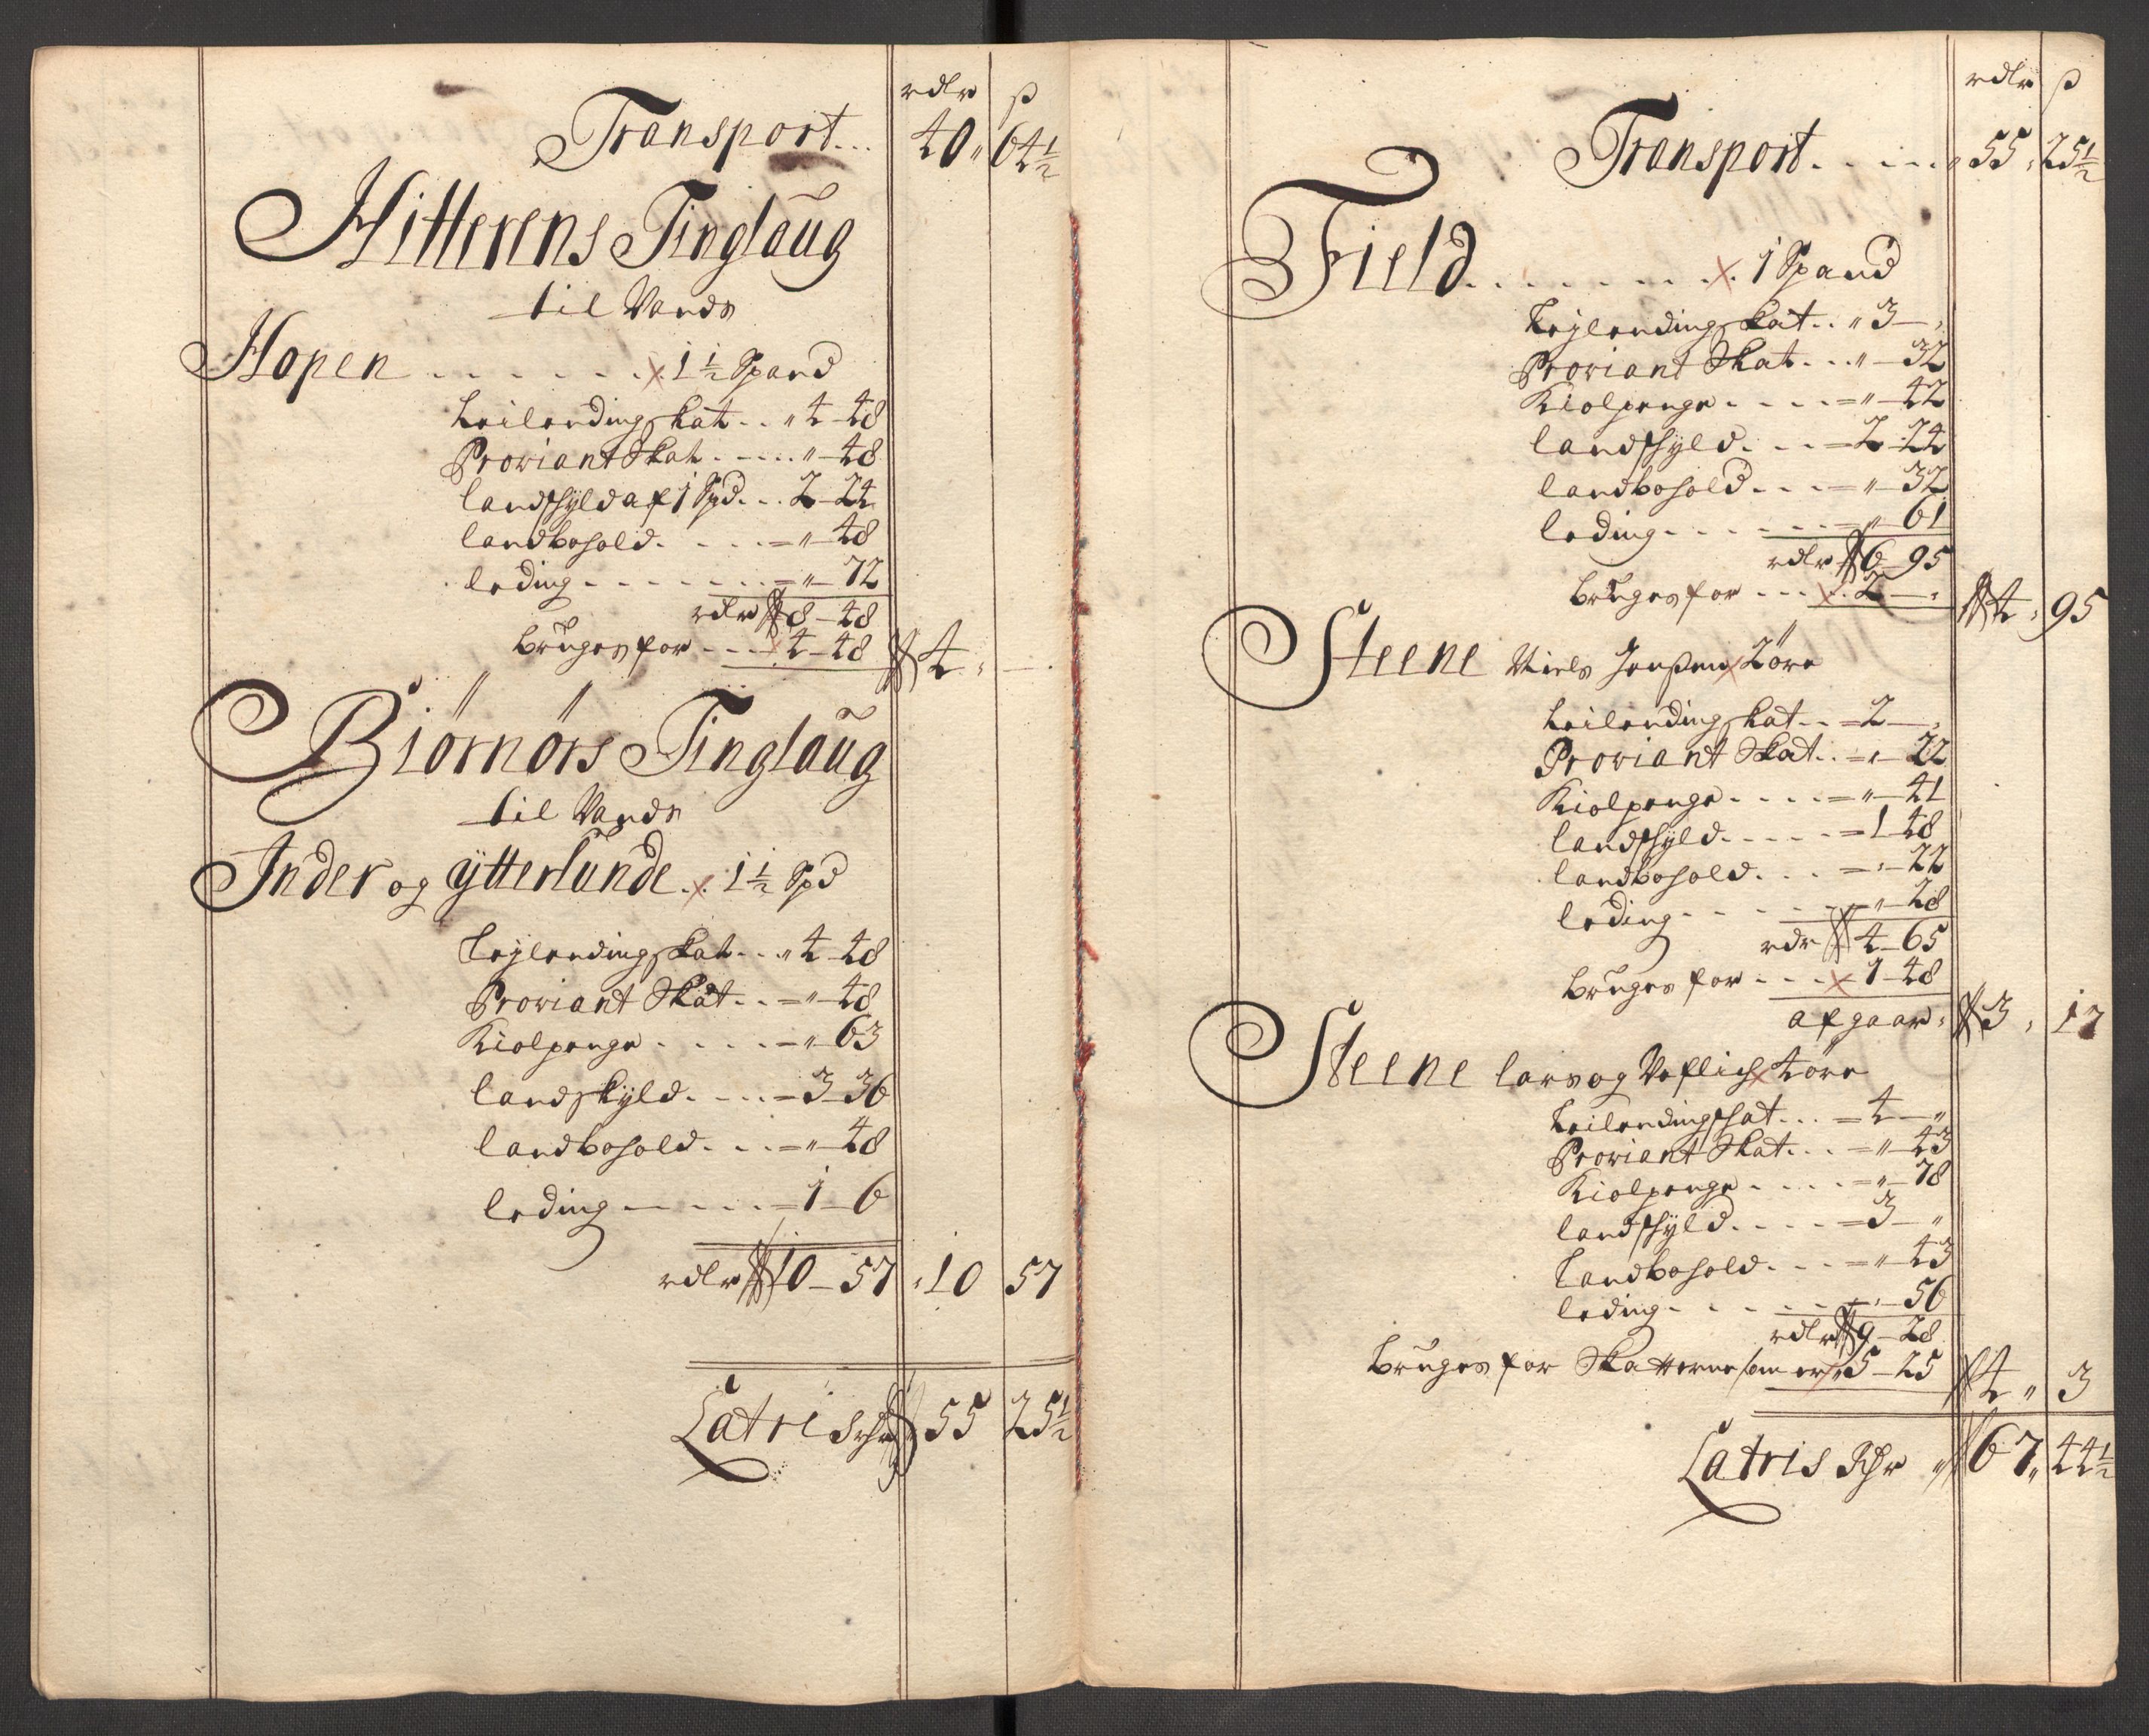 rdlr ꝑ
Transport... 40 " 64½
Hitterens Tinglaug
til Vands
Hopen . . . . . . x 1½ Spand
Leilending skat . . " 4 - 48
Proviant Skat . - . . . " - 48
landskyld af 1 Spd . . . 2 - 24
landbohold . . . . . = " - 48
leding - - - - - - . . = " - 72
rdlr 8 - 48
bruges for - - - x 4 - 48 4 " —
Biörnörs Tinglaug
til Vands
Inder og ÿtterlunde . x . 1½ Spd
Leÿlending skat . . . " 4 - 48
Proviant Skat . . = " - 48
Kiolpenge . . . . - = " 63
landskÿld . - . . = 3 - 36
landbohold . . . = " - 48
leding - - - . . . = 1 - 6
rdlr 10 - 57 " 10 57
Latris 55 25½
rdlr ꝑ
Transport . . . . . " 55 " 25½
Field . . . . . . . x . 1 Spand
Leÿlending skat . . " 3 - "
Proviant Skat . . . " - 32
Kiolpenge . - - . = " - 42
landskÿld . . . = 2 - 24
landbohold . . . = " - 32
leding - - - - - - = " - 61
rdlr 6 - 95
bruges for - - - x . 2 - " 4 " 95
Steene Niels Jenßen x 2 öre
Leilending skat . . = 2 - "
Proviant Skat . . = " - 22
Kiolpenge . . . . = " - 41
landskÿld . . . . - = 1 - 48
landbohold . . . = " - 22
leding - - - - - = " - 28
rdr 4 - 65
bruges for - - - x 1 - 48
afgaar " 3 " 17
Steene lars og x 4 öre
Leilending skat . . . = 4 - "
Proviant Skat . . . = " - 43
Kiolpenge . . . . = " - 78
landskÿld . . . . = 3 - "
Landbohold . . . = " - 43
leding - - - - - - " - 56
rdlr 9 - 28
bruges for Skatterne som er " 5 - 25 4 " 3
Latris " 67 " 44½